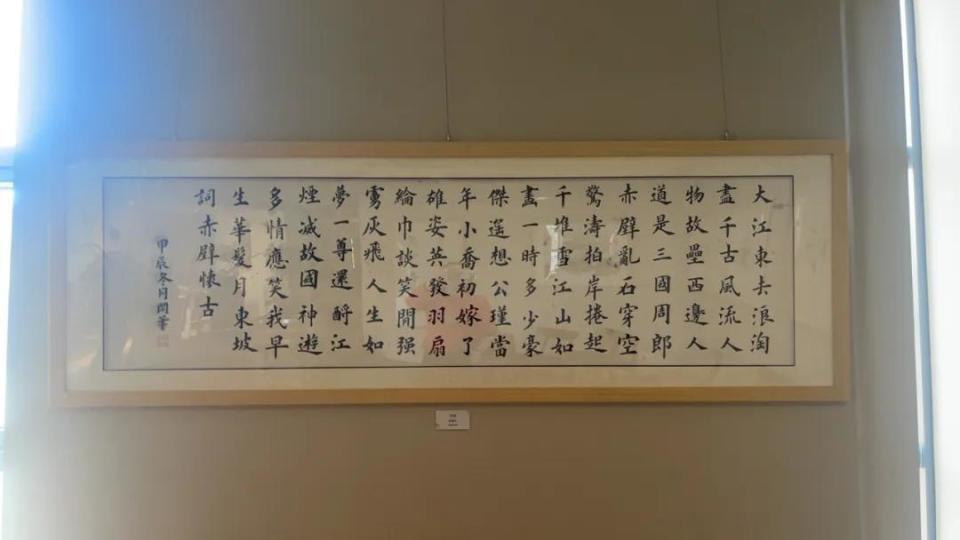 大江東去浪淘
盡千古風流人
物故壘西邊人
道是三國周郎
赤壁亂石穿空
驚濤拍岸捲起
千堆雪江山如
畫一時多少豪
傑遥想公瑾當
年小喬初嫁了
雄姿英發羽扇
綸巾談笑間强
虜灰飛人生如
夢一尊還酹江
煙滅故國神遊
多情應笑我早
生華髮月東坡
詞赤壁懷古
甲辰冬月